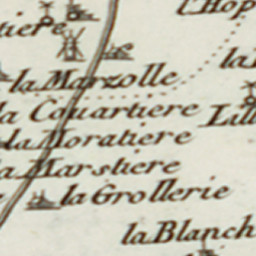 l'Hop
tiere
la
la Marzolle
la Couartiere Lill
la Moratiere
la Marstiere
la Grollerie
la Blanch